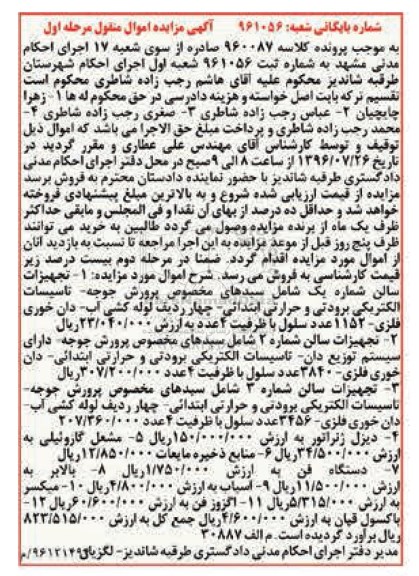 شماره بایگانی شعبه: ۹۶۱۰۵۶ آگهی مزایده اموال منقول مرحله اول
به موجب پرونده کلاسه ۹۶۰۰۸۷ صادره از سوی شعبه ۱۷ اجرای احکام
مدنی مشهد به شماره ثبت ۹۶۱۰۵۶ شعبه اول اجرای احکام شهرستان
طرقبه شاندیز محکوم علیه آقای هاشم رجب زاده شاطری محکوم است
تقسیم ترکه بابت اصل خواسته و هزینه دادرسی در حق محکوم له ها ۱- زهرا
چابچیان ۲- عباس رجب زاده شاطری ۳- صغری رجب زاده شاطری ۴-
محمد رجب زاده شاطری و پرداخت مبلغ حق الاجرا می باشد که اموال ذیل
توقیف و توسط کارشناس آقای مهندس علی عطاری و مقرر گردید در
تاریخ ۱۳۹۶/۰۷/۲۶ از ساعت ۸ الی ۹صبح در محل دفتر اجرای احکام مدنی
دادگستری طرقبه شاندیز با حضور نماینده دادستان محترم به فروش برسد
مزایده از قیمت ارزیابی شده شروع و به بالاترین مبلغ پیشنهادی فروخته
خواهد شد و حداقل ده درصد از بهای آن نقدا و فی المجلس و مابقی حداکثر
ظرف یک ماه از برنده مزایده وصول می گردد طالبین به خرید می توانند
ظرف پنج روز قبل از موعد مزایده به این اجرا مراجعه تا نسبت به بازدید آنان
از اموال مورد مزایده اقدام گردد. ضمنا در مرحله دوم بیست درصد زیر
قیمت کارشناسی به فروش می رسد. شرح اموال مورد مزایده: ۱- تجهیزات
سالن شماره یک شامل سیدهای مخصوص پرورش جوجه- تاسیسات
الکتریکی برودتی و حرارتی ابتدائی- چهار ردیف لوله کشی آب- دان خوری
فلزی- ۱۱۵۲عدد سلول با ظرفیت ۴عدد به ارزش ۲۳/۰۴۰/۰۰۰ریال
۲- تجهیزات سالن شماره ۲ شامل سبدهای مخصوص پرورش جوجه- دارای
سیستم توزیع دان- تاسیسات الکتریکی برودتی و حرارتی ابتدائی- دان
خوری فلزی- ۳۸۴۰عدد سلول با ظرفیت ۴عدد ۳۰۷/۲۰۰/۰۰۰ریال
۳- تجهیزات سالن شماره ۳ شامل سیدهای مخصوص پرورش جوجه-
تاسیسات الکتریکی برودتی و حرارتی ابتدائی- چهار ردیف لوله کشی آب-
دان خوری فلزی- ۳۴۵۶عدد سلول با ظرفیت ۴عدد ۲۰۷/۳۶۰/۰۰۰
۴- دیزل ژنراتور به ارزش ۱۵۰/۰۰۰/۰۰۰ریال ۵- مشعل گازوئیلی به
ارزش ۳۴/۵۰۰/۰۰۰ریال ۶- منابع ذخیره مایعات ۱۲/۸۵۰/۰۰۰ریال
۷- دستگاه فن به ارزش ۱/۷۵۰/۰۰۰ریال ۸- بالابر به
ارزش ۱۱/۵۰۰/۰۰۰ریال ۹- آسیاب به ارزش ۴/۸۰۰/۰۰۰ریال ۱۰- میکسر
به ارزش ۵/۳۱۵/۰۰۰ریال ۱۱- اگزوز فن به ارزش ۶۰/۶۰۰/۰۰۰ریال ۱۲-
باکسول قپان به ارزش ۴/۶۰۰/۰۰۰ریال جمع کل به ارزش ۸۲۳/۵۱۵/۰۰۰
ریال برآورد گردیده است. م الف ۳۰۸۸۷
مدیر دفتر اجرای احکام مدنی دادگستری طرقبه شاندیز- لگزیان